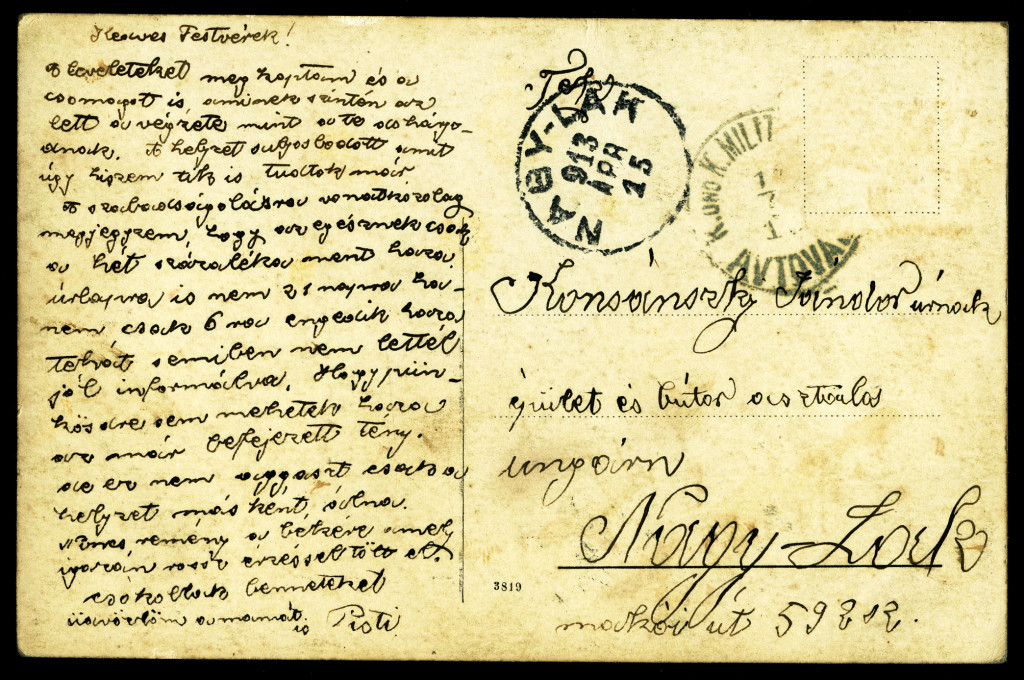 Kedves Testvérek!
A leveleteket meg kaptam és a
csomagot is, aminek szintén az
lett a végzete mint a te
A helyzet sulyosbodott amit
úgy hiszem tik is tudtok már
A szabadságolásra vonatkozolag
megjegyzem, hogy az egésznek csak
a hét százaléka ment haza.
úrlapra is nem 21 napra ha-
nem csak 6 ra engedik haza
tehát semiben nem lettél
jól informálva. Hogy pün-
kösdre sem mehetek haza
az már befejezett tény.
de ez nem aggaszt csak a
helyzet más ként álna.
Nincs remény a békére amely
igazán rossz érzéssel tölt el.
csókollak benneteket
üdvözlöm a mamát is Pisti
NAGY-LAK
913
APR
15
K. UND K. MILIT
AVTOVA
Konsánszky Sándor úrnak
épület és bútor asztalos
ungárn
Nagy-Lak
makói út 592 sz.
3819